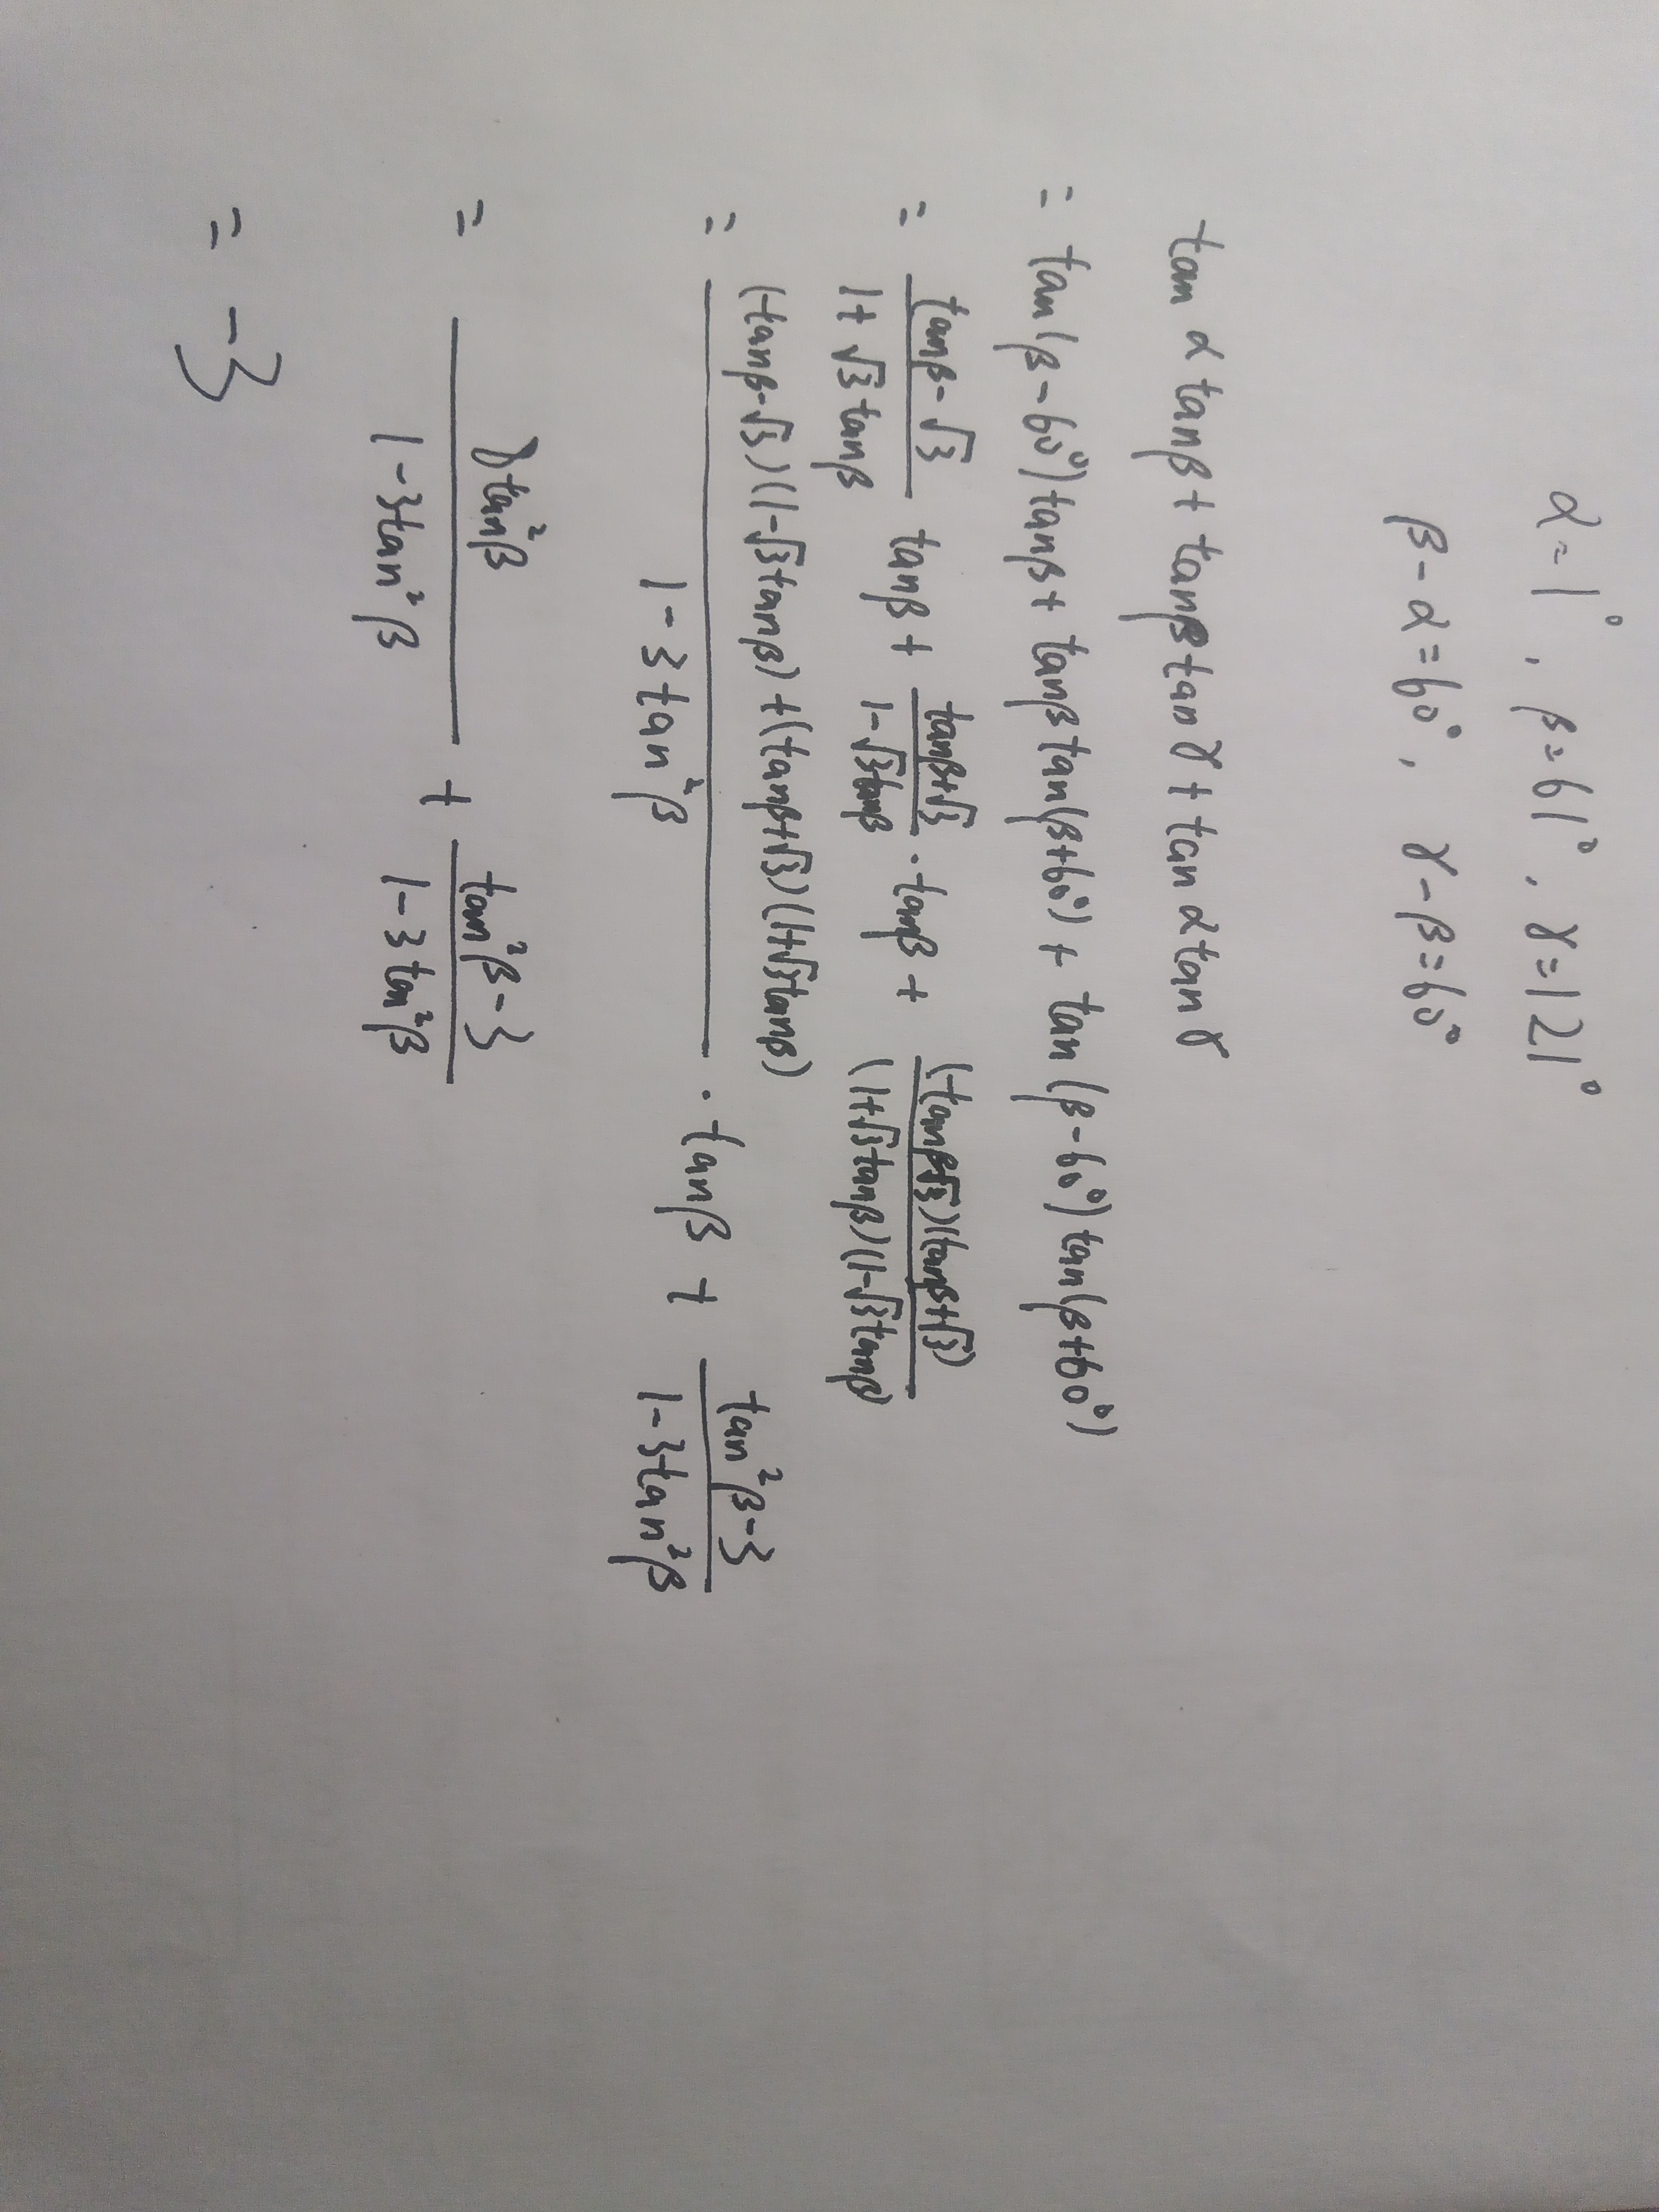 α=1°, β=61°, γ=121°
β-α=60°, γ-β=60°
tan α tanβ + tanβ tan γ + tan α tan γ
= tan(β-60°) tanβ + tanβ tan(β+60°) + tan(β-60°) tan(β+60°)
= \frac{tanβ-√3}{1+√3 tanβ} tanβ + \frac{tanβ+√3}{1-√3tanβ} · tanβ + \frac{(tanβ-√3)(tanβ+√3)}{(1+√3tanβ)(1-√3tanβ)}
= \frac{(tanβ-√3)(1-√3tanβ)+(tanβ+√3)(1+√3tanβ)}{1-3tan²β} · tanβ + \frac{tan²β-3}{1-3tan²β}
= \frac{8tan²β}{1-3tan²β} + \frac{tan²β-3}{1-3tan²β}
= -3